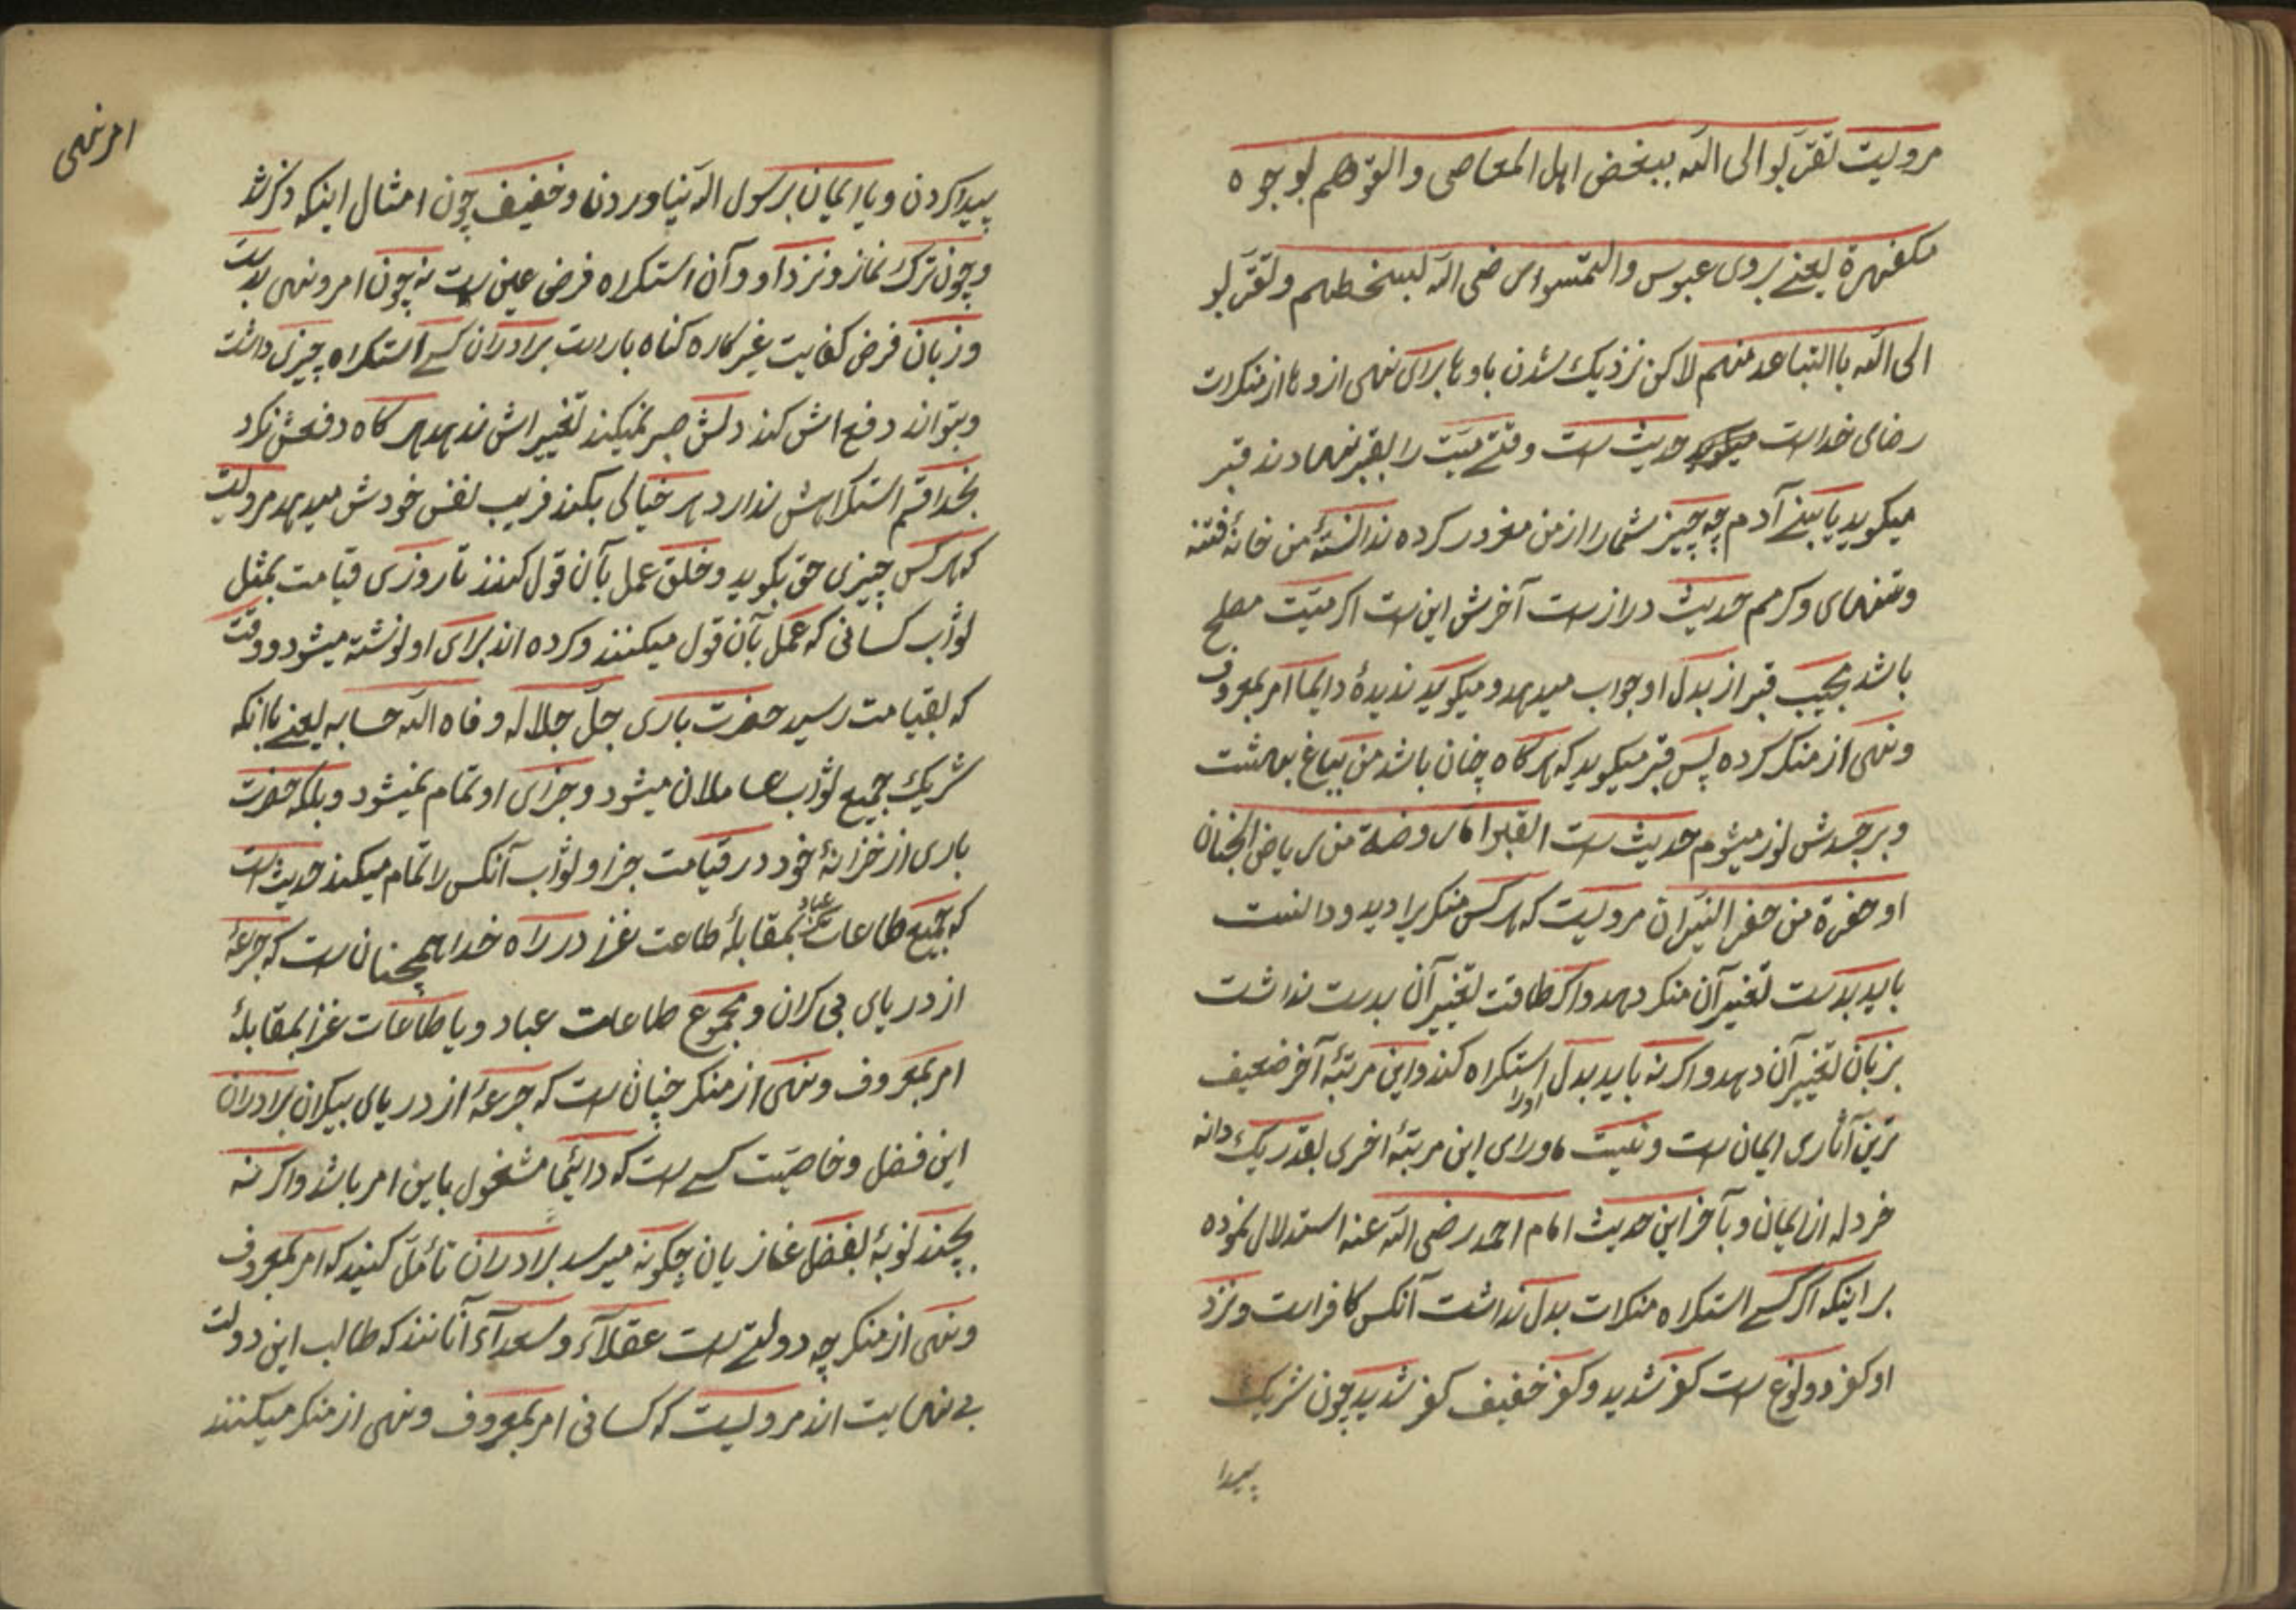 مرویست تقرّبوا الی اللّه ببغض اهل المعاصی والقوهم بوجوه
مکفهرة یعنے بروی عبوس والتمسوا رضی اللّه بسخطهم وتقرّبو
الی اللّه باالتباعد منهم لاکن نزدیک شدن باوها برای نهی ازوها از منکرات
رضای خداست حدیث است وقتے میّت را بقبر نهادند قبر
میکوید یا بنے آدم چه چیز شما را از من مغرور کرده ندانستهٔ من خانهٔ فتنه
و کرمم حدیث دراز است آخرش این است اکر میّت مصلح
باشد مجیب قبر از بدل او جواب میدهد و میکوید ندیدهٔ دایما امر بمعروف
ونهی از منکر کرده پس قبر میکوید که هرکاه چنان باشد من بباغ بهشت
و بر جسدش نور میشوم حدیث است القبر اما روضة من ریاض الجنان
او حفرة من حفر النیّران مرویست که هر کس منکر برا دید و دانست
باید بدست تغیر آن منکر دهد و اکر طاقت تغییر آن بدست نداشت
بزبان تغییر آن دهد و اکر نه باید بدل اورا استکراه کند و این مرتبهٔ آخر ضعیف
ترین آثاری ایمان است و نیست ماورای این مرتبهٔ اخری بقدر یک دانه
خردله از ایمان و بآخر این حدیث امام احمد رضی اللّه عنه استدلال نموده
بر اینکه اکر کسے استکراه منکرات بدل نداشت آنکس کافر است و نزد
او کفر دو نوع است کفر شدید و کفر خفیف کفر شدید چون شریک
پیدا
امر نهی
پیدا کردن و یا ایمان برسول اللّه نیاوردن و خفیف چون امثال اینکه ذکر شد
و چون ترک نماز و نزد او و آن استکراه فرض عین است نه چون امر و نهی بدست
و زبان فرض کفایت غیر کاره کناه باراست برادران کسے استکراه چیزی داشت
و بتواند دفع اش کند دلش صبر نمیکند تغییر اش ندهد هر کاه دفعش نکرد
بخدا قسم استکراهش ندارد هر خیالی بکند فریب نفس خودش میدهد مرویست
که هر کس چیزی حق بکوید و خلق عمل بآن قول کنند تا روزی قیامت بمثل
ثواب کسانی که عمل بآن قول میکنند و کرده اند برای او نوشته میشود و وقت
که بقیامت رسید حضرت باری جلّ جلاله وفاه اللّه حسابه یعنے باانکه
شریک جمیع ثواب عاملان میشود و جزای او تمام نمیشود و بلکه حضرت
باری از خزانهٔ خود در قیامت جزا و ثواب آنکس را تمام میکند حدیث است
که جمیع طاعات عباد بمقابلهٔ طاعت غزز در راه خدا همچنان است که جرعهٔ
از دریای بی کران و مجموع طاعات عباد و یا طاعات غزز بمقابلهٔ
امر بمعروف و نهی از منکر چنان است که جرعهٔ از دریای بیکران برادران
این فضل و خاصیّت کسے است که دایمًا مشغول باین امر باشد و اکر نه
بچند نوبهٔ بفضل غازیان چکونه میرسد برادران تأمّل کنید که امر بمعروف
و نهی از منکر چه دولتے است عقلآء و سعدآء آنانند که طالب این دولت
بے نهایت اند مرویست که کسانی امر بمعروف و نهی از منکر میکنند